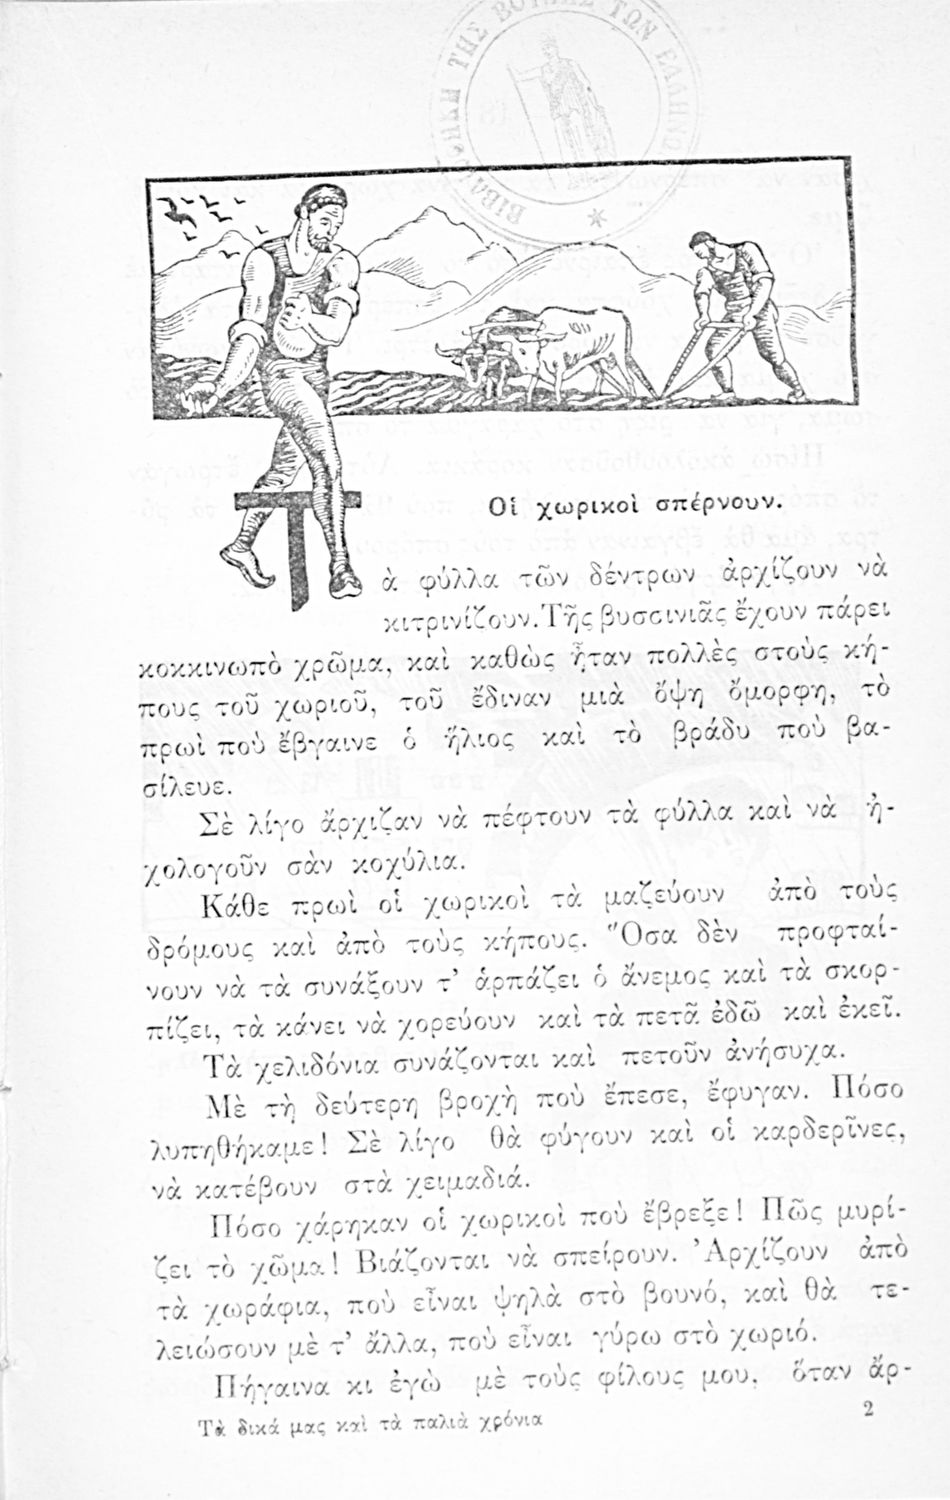 ΒΙΒΛΙΟΘΗΚΗ ΤΗΣ ΒΟΥΛΗΣ ΤΩΝ ΕΛΛΗΝΩΝ
Οἱ χωρικοὶ σπέρνουν.
Τὰ φύλλα τῶν δέντρων ἀρχίζουν νὰ
κιτρινίζουν. Τῆς βυσσινιᾶς ἔχουν πάρει
κοκκινωπὸ χρῶμα, καὶ καθὼς ἦταν πολλὲς στοὺς κή-
πους τοῦ χωριοῦ, τοῦ ἔδιναν μιὰ ὄψη ὄμορφη, τὸ
πρωὶ ποὺ ἔβγαινε ὁ ἥλιος καὶ τὸ βράδυ ποὺ βα-
σίλευε.
Σὲ λίγο ἄρχιζαν νὰ πέφτουν τὰ φύλλα καὶ νὰ ἠ-
χολογοῦν σὰν κοχύλια.
Κάθε πρωὶ οἱ χωρικοὶ τὰ μαζεύουν ἀπὸ τοὺς
δρόμους καὶ ἀπὸ τοὺς κήπους. Ὅσα δὲν προφταί-
νουν νὰ τὰ συνάξουν τ' ἁρπάζει ὁ ἄνεμος καὶ τὰ σκορ-
πίζει, τὰ κάνει νὰ χορεύουν καὶ τὰ πετᾶ ἐδῶ καὶ ἐκεῖ.
Τὰ χελιδόνια συνάζονται καὶ πετοῦν ἀνήσυχα.
Μὲ τὴ δεύτερη βροχὴ ποὺ ἔπεσε, ἔφυγαν. Πόσο
λυπηθήκαμε! Σὲ λίγο θὰ φύγουν καὶ οἱ καρδερῖνες,
νὰ κατέβουν στὰ χειμαδιά.
Πόσο χάρηκαν οἱ χωρικοὶ ποὺ ἔβρεξε! Πῶς μυρί-
ζει τὸ χῶμα! Βιάζονται νὰ σπείρουν. Ἀρχίζουν ἀπὸ
τὰ χωράφια, ποὺ εἶναι ψηλὰ στὸ βουνό, καὶ θὰ τε-
λειώσουν μὲ τ' ἄλλα, ποὺ εἶναι γύρω στὸ χωριό.
Πήγαινα κι ἐγὼ μὲ τοὺς φίλους μου, ὅταν ἄρ-
Τὰ δικά μας καὶ τὰ παλιὰ χρόνια 2